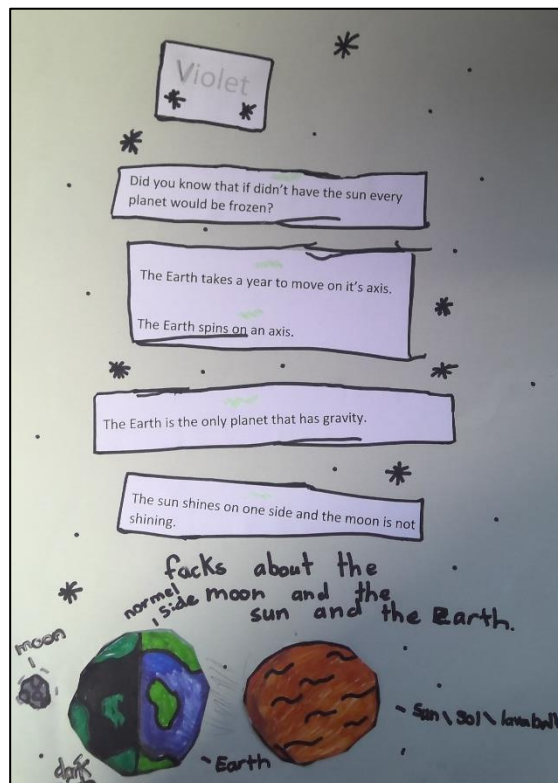 Violet
Did you know that if didn't have the sun every
planet would be frozen?
The Earth takes a year to move on it's axis.
The Earth spins on an axis.
The Earth is the only planet that has gravity.
The sun shines on one side and the moon is not
shining.
facks about the
moon and the
sun and the Earth.
normel
side
moon
dark
Earth
Sun \ Sol \ lava ball